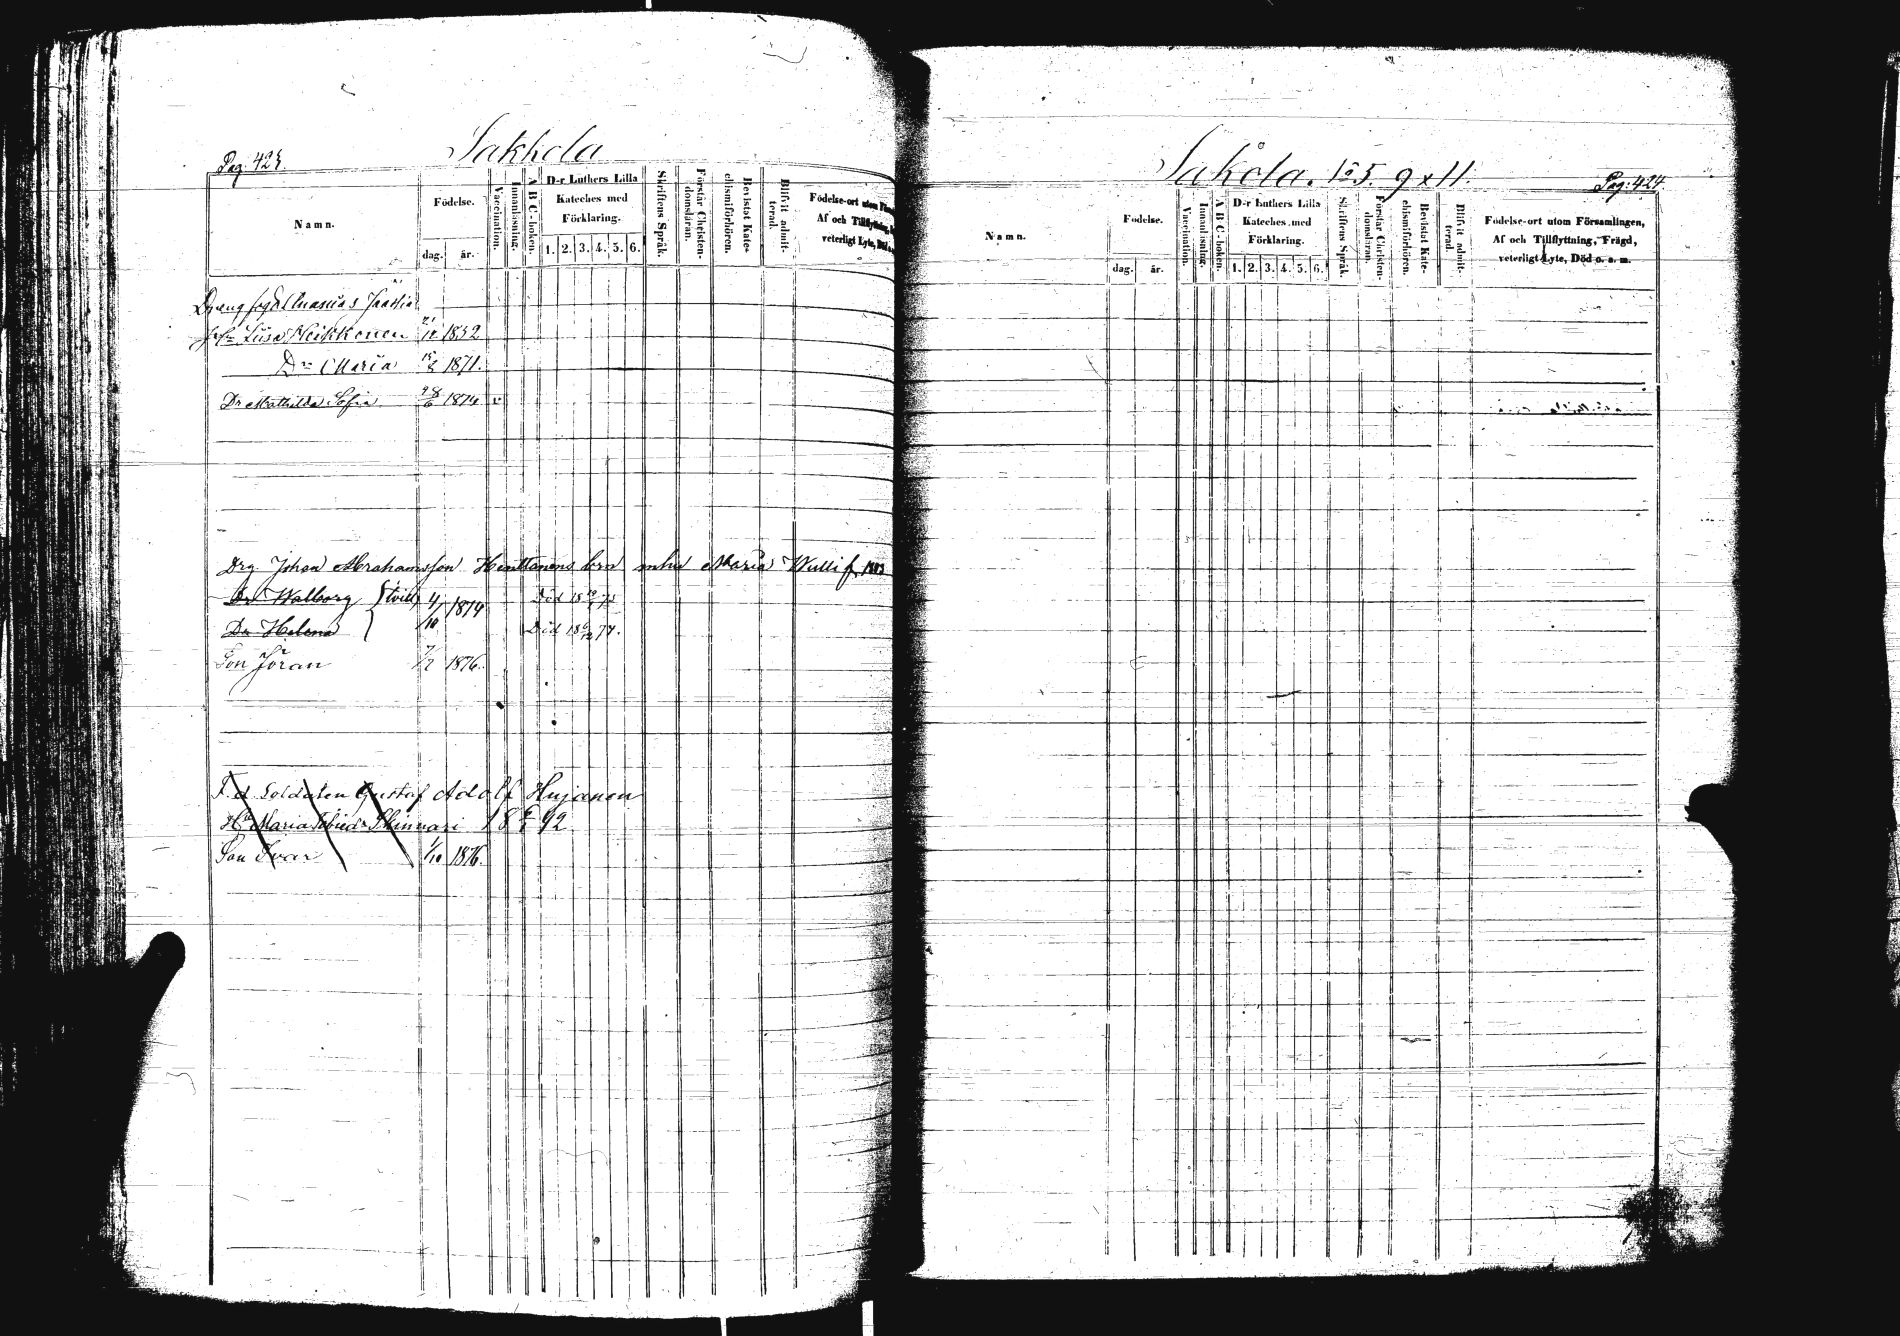 Pag. 423.
Sakkola
Namn.
Födelse.
dag.
år.
Vaccination.
Innanläsning.
A B C-boken.
D-r Luthers Lilla
Kateches med
Förklaring.
1. 2. 3. 4. 5. 6.
Skriftens Språk.
Förstår Christen-
domsläran.
Bevistat Kate-
chismiförhören.
Blifvit admit-
terad.
Födelse-ort utom
Af och Tillflyttning,
veterligt Lyte, Död
Lisa Heikkonen 1852
Dr Maria 1871.
Dr Mathilda Sofia 28/6 1874 v
Drg. Johan Abrahamsson Henttonens bro Maria Wulli f. 1883
Dr Walborg (tvill) 4/10 1874 Död 18 75
Dr Helena Död 18 74.
Son Jöran 7/2 1876.
F. d. Soldaten Gustaf Adolf Hujanen
Hu Maria Skinnari 18 92
Son Ivar 1/10 1876.
Sakola. 1 o 5. 9 x 11
Pag: 424
Namn.
Födelse.
dag.
år.
Vaccination.
Innanläsning.
A B C-boken.
D-r Luthers Lilla
Kateches med
Förklaring.
1. 2. 3. 4. 5. 6.
Skriftens Språk.
Förstår Christen-
domsläran.
Bevistat Kate-
chismiförhören.
Blifvit admit-
terad.
Födelse-ort utom Församlingen,
Af och Tillflyttning, Frägd,
veterligt Lyte, Död o. s. m.